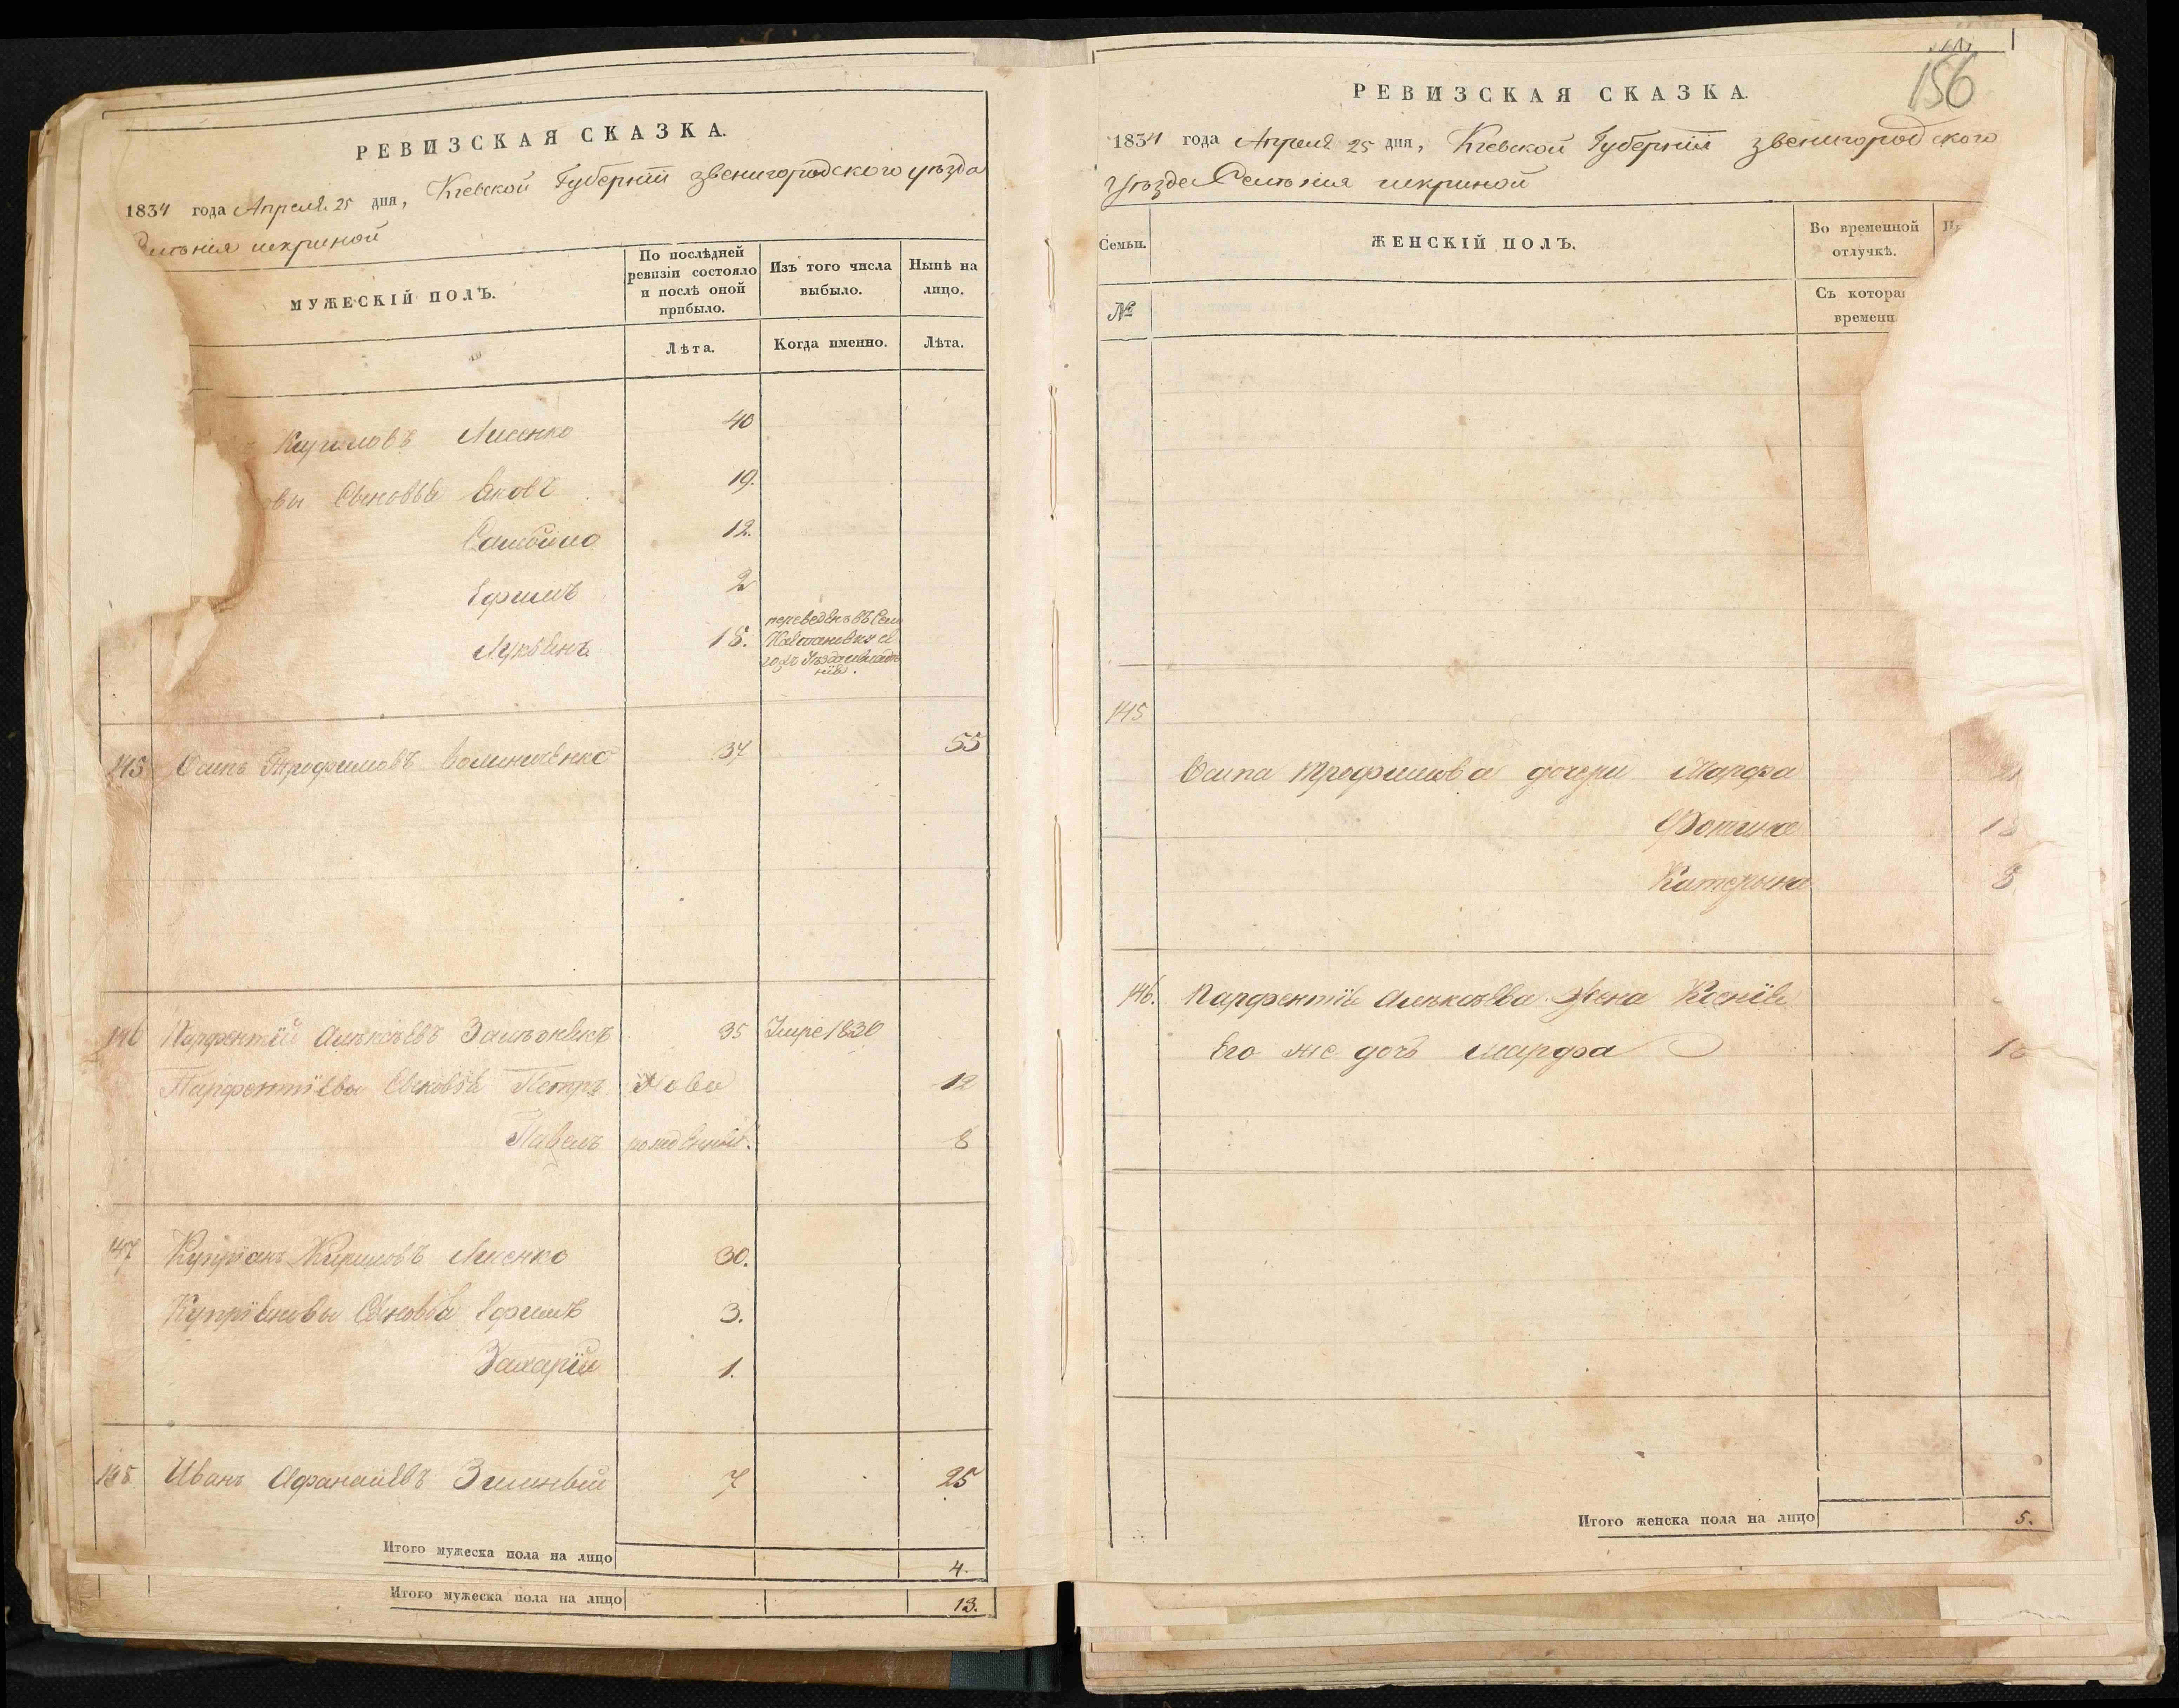 РЕВИЗСКАЯ СКАЗКА.
1834 года Апреля 25 дня, Кіевской Губерніи звенигородского уѣзда
искриной
МУЖЕСКІЙ ПОЛЪ.
По послѣдней ревизіи состояло и послѣ оной прибыло.
Изъ того числа выбыло.
Нынѣ на лицо.
Лѣта.
Когда именно.
Лѣта.
Кириловъ Лисенко 40
вы Сыновья Яковъ 19.
Самойло 12.
Ефимъ 2
Лукьянъ 18. переведенъ въ
145 Осипъ Трофимовъ 37 55
146 Парфентій Алѣксѣевъ 35 Умре 1830
Парфентіевы Сыновья Петръ Ново 12
Павелъ рожденный. 8
147 Купріянъ Кириловъ Лисенко 30.
Купріяновы Сыновья Ефимъ 3.
Захарій 1.
Иванъ Афанасіевъ 7 25
Итого мужеска пола на лицо 4.
Итого мужеска пола на лицо 13.
156
РЕВИЗСКАЯ СКАЗКА.
1834 года Апреля 25 дня, Кіевской Губерніи звенигородского
Уѣзда Селѣнія искриной
Семьи.
ЖЕНСКІЙ ПОЛЪ.
Во временной отлучкѣ.
№
Съ котораг
времени
145
Осипа трофимова дочери Марфа
Фотина
Катерына 8
146. Парфентія Алѣксѣева Жена Ксенія
Его же дочь марфа
Итого женска пола на лицо 5.